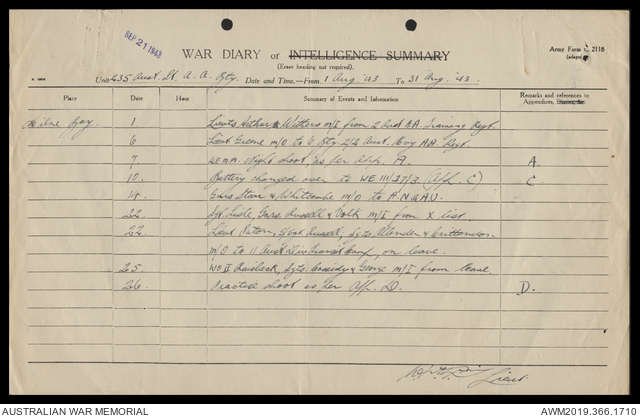 SEP 21 1943
WAR DIARY of INTELLIGENCE SUMMARY
(Erase heading not required).
Army Form C. 2118
(adapted)
Unit 235 Aust. Lt. A. A. Bty. Date and Time.—From 1 Aug. '43 To 31 Aug. '43.
Place Date Hour Summary of Events and Information Remarks and references to Appendices,
Milne Bay. 1 Lieuts Arthur & Withers m/I from 2 Aust A.A. Training Regt.
6 Lieut Greene m/o to 6 Bty 2/2 Aust. Hvy A.A. Regt.
7 40 mm. Night shoot as per App. A. A.
10. Battery changed over to WE III/27/3 (App. C) C.
14. Gnrs Starr & Whitcombe m/o to A.N.G.A.U.
22 Sgt Lisle, Gnrs. Russell & Volk m/I from X list.
22 Lieut Paton, Sgts
m/o to 11 Aust Div Transit Camp, on leave.
25. WO II Sgts. Cassidy & George m/I from leave.
26 Practise shoot as per App. D. D.
Lieut
AUSTRALIAN WAR MEMORIAL AWM2019.366.1710